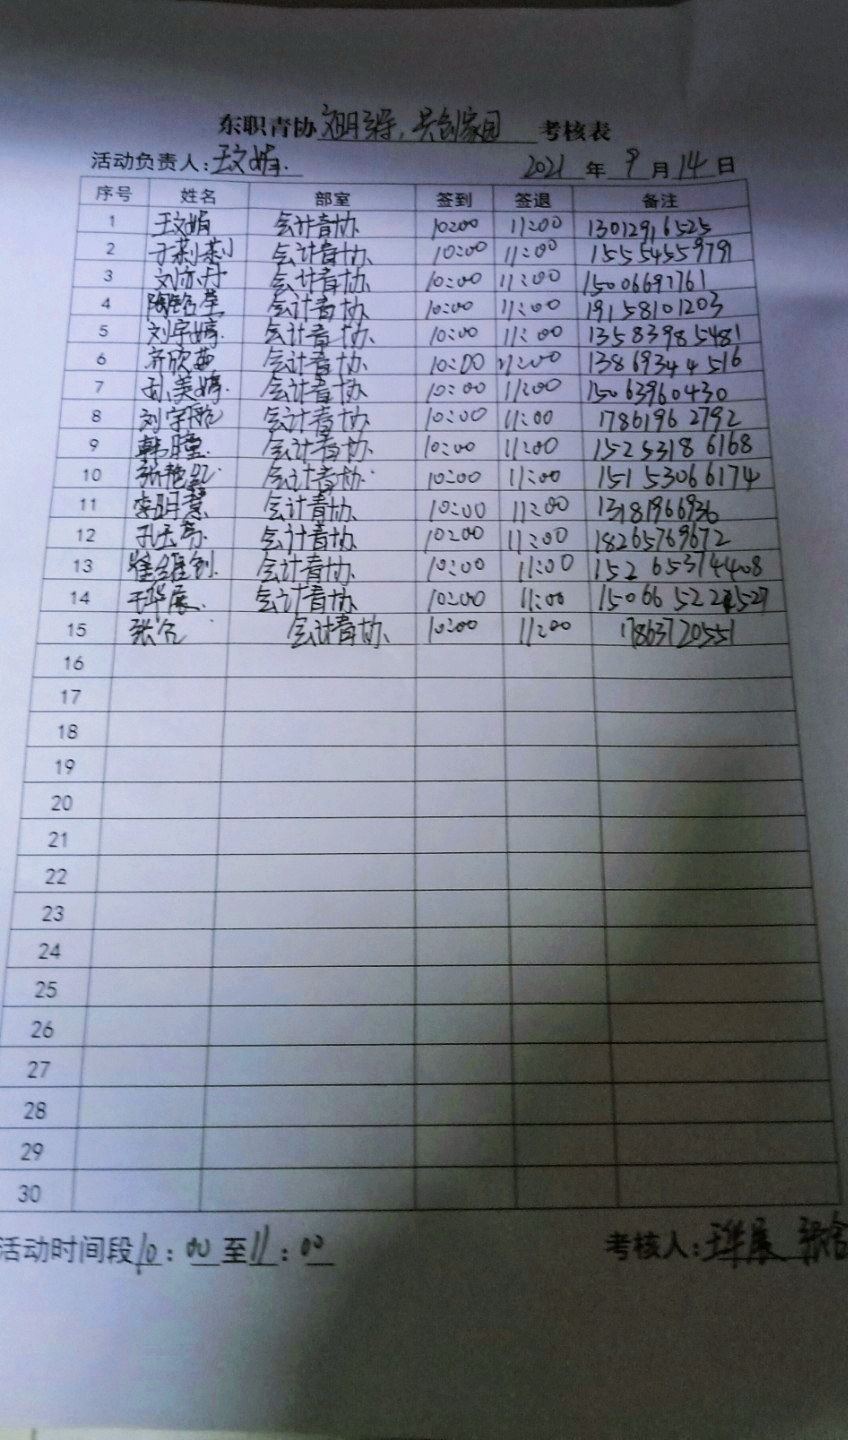 东职青协 文明引导，共创家园 考核表
活动负责人：王文娟 2021 年 9 月 14 日
序号 姓名 部室 签到 签退 备注
1 王文娟 会计青协 10:00 11:00 13012916525
2 于莉莉 会计青协 10:00 11:00 15554559791
3 刘亦丹 会计青协 10:00 11:00 15006697761
4 陶铭莹 会计青协 10:00 11:00 19158101203
5 刘宇婷 会计青协 10:00 11:00 13583985481
6 齐欣茹 会计青协 10:00 11:00 13869344516
7 孙美婷 会计青协 10:00 11:00 15063960430
8 刘宇 会计青协 10:00 11:00 17861962792
9 韩月瞳 会计青协 10:00 11:00 15253186168
10 张艳 会计青协 10:00 11:00 15153066174
11 李明慧 会计青协 10:00 11:00 13181966936
12 孔 会计青协 10:00 11:00 18265769672
13 崔维钊 会计青协 10:00 11:00 15265374408
14 王华展 会计青协 10:00 11:00 15066522 527
15 张含 会计青协 10:00 11:00 17863720551
16
17
18
19
20
21
22
23
24
25
26
27
28
29
30
活动时间段 10：00 至 11：00 考核人：王华展 张含